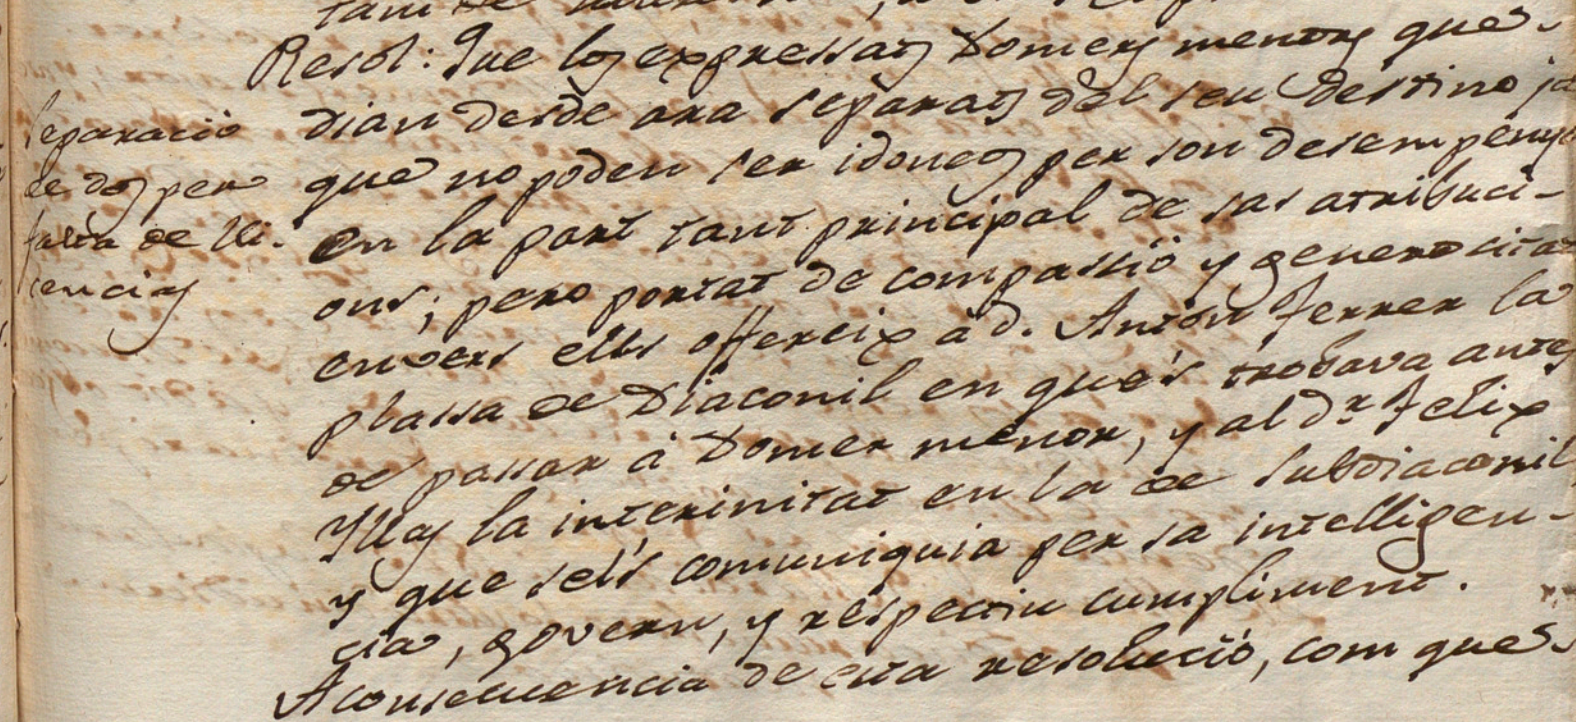 tant de
Resol: Que los expressats Domers menors que-
dian desde ara separats del seu destino ja
que no poden ser idoneos per son desempenyo
en la part tant principal de sas atribuci-
ons; pero portat de compassió y generositat
envers ells offereix à D. Anton Ferrer la
plassa de Diaconil en que's trobava antes
de passar à Domer menor, y al Dr. Felix
Illas la interinitat en la de subdiaconil
y que sels comuniquia per sa intelligen-
cia, govern, y respectiu cumpliment.
A consecuencia de esta resolució, com que-
separació
de dos per
falta de lli-
cencias